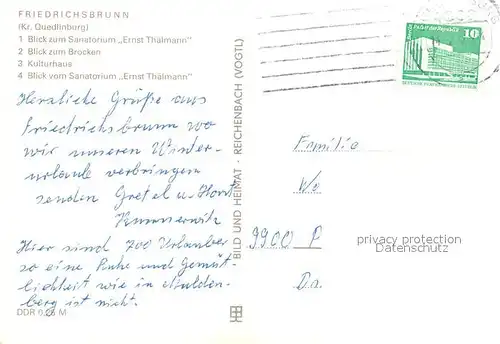 FRIEDRICHSBRUNN
(Kr. Quedlinburg)
1 Blick zum Sanatorium „Ernst Thälmann"
2 Blick zum Brocken
3 Kulturhaus
4 Blick vom Sanatorium „Ernst Thälmann"
Herzliche Grüße aus
Friedrichsbrunn wo
wir unseren Winter-
urlaub verbringen
senden Gretel u. Horst
Hier sind 700 Urlauber
so eine Ruhe und Gemüt-
lichkeit wie in Mulden-
berg ist nicht.
DDR 0,25 M
BILD UND HEIMAT · REICHENBACH (VOGTL)
Palast der Republik
10
Familie
We
9900 P
privacy protection
Datenschutz